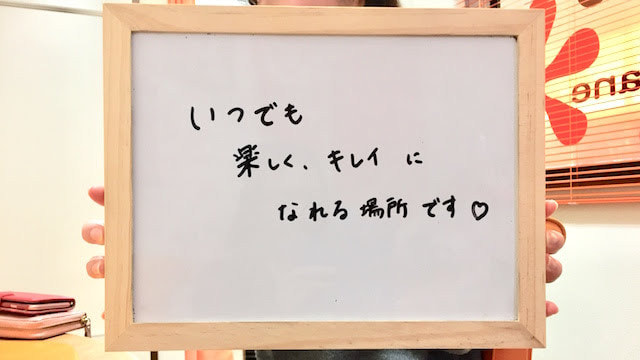 いつでも
楽しく、キレイに
なれる場所です♡
ane